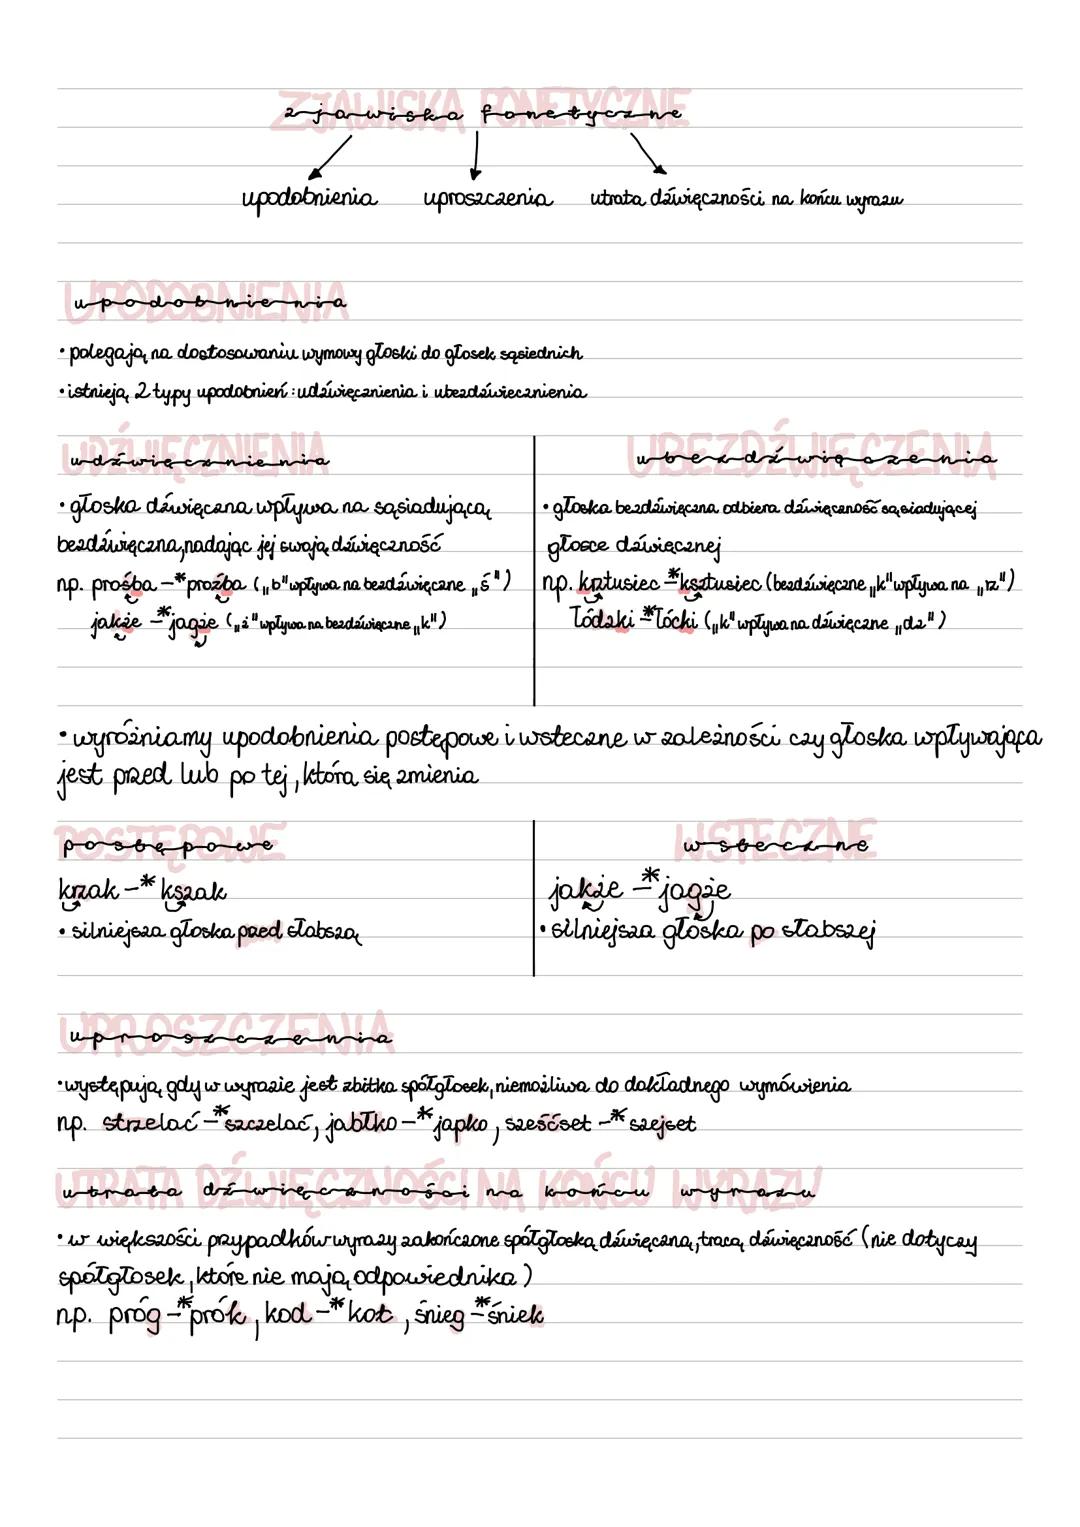 zjawiska fonetyczne
upodobnienia uproszczenia utrata dźwięczności na końcu wyrazu
upodobnienia
• polegają na dostosowaniu wymowy głoski do głosek sąsiednich
• istnieją 2 typy upodobnień: udźwięcznienia i ubezdźwiecznienia
udźwięcznienia
• głoska dźwięczna wpływa na sąsiadującą
bezdźwięczną, nadając jej swoją dźwięczność
np. prośba -* proźba („b" wpływa na bezdźwięczne „ś")
jakże -* jagże („ż" wpływa na bezdźwięczne „k")
ubezdźwięczenia
• głoska bezdźwięczna odbiera dźwięczność sąsiadującej
głosce dźwięcznej
np. krztusiec -* ksztusiec (bezdźwięczne „k" wpływa na „rz")
łódzki -* łócki („k" wpływa na dźwięczne „dz")
• wyróżniamy upodobnienia postępowe i wsteczne w zależności czy głoska wpływająca
jest przed lub po tej, która się zmienia
postępowe
krzak -* kszak
• silniejsza głoska przed słabszą
wsteczne
jakże -* jagże
• silniejsza głoska po słabszej
uproszczenia
• występują, gdy w wyrazie jest zbitka spółgłosek, niemożliwa do dokładnego wymówienia
np. strzelać -* szczelać, jabłko -* japko, sześćset -* szejset
utrata dźwięczności na końcu wyrazu
• w większości przypadków wyrazy zakończone spółgłoską dźwięczną, tracą dźwięczność (nie dotyczy
spółgłosek, które nie mają odpowiednika)
np. próg -* prók, kod -* kot, śnieg -* śniek